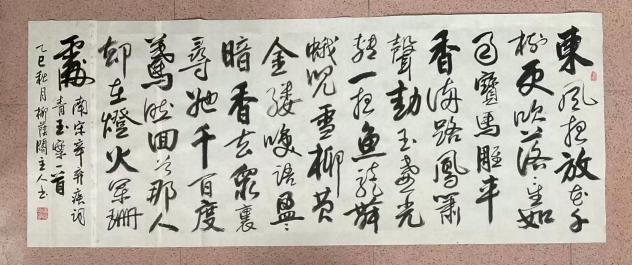 東風夜放花千
樹更吹落星如
雨寶馬雕車
香滿路鳳簫
聲動玉壺光
轉一夜魚龍舞
蛾兒雪柳黄
金縷笑語盈〻
暗香去眾裏
尋她千百度
驀然回首那人
却在燈火闌珊
處
南宋辛弃疾詞
青玉案一首
乙巳秋月柳蔭閣主人书